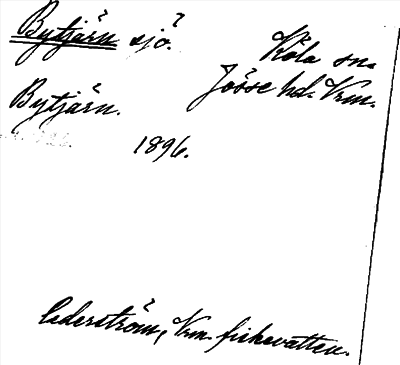 Bytjärn sjö?
Köla sn.
Jösse hd. Vrm.
Bytjärn.
1896.
Cederström, Vrm. fiskevatten.